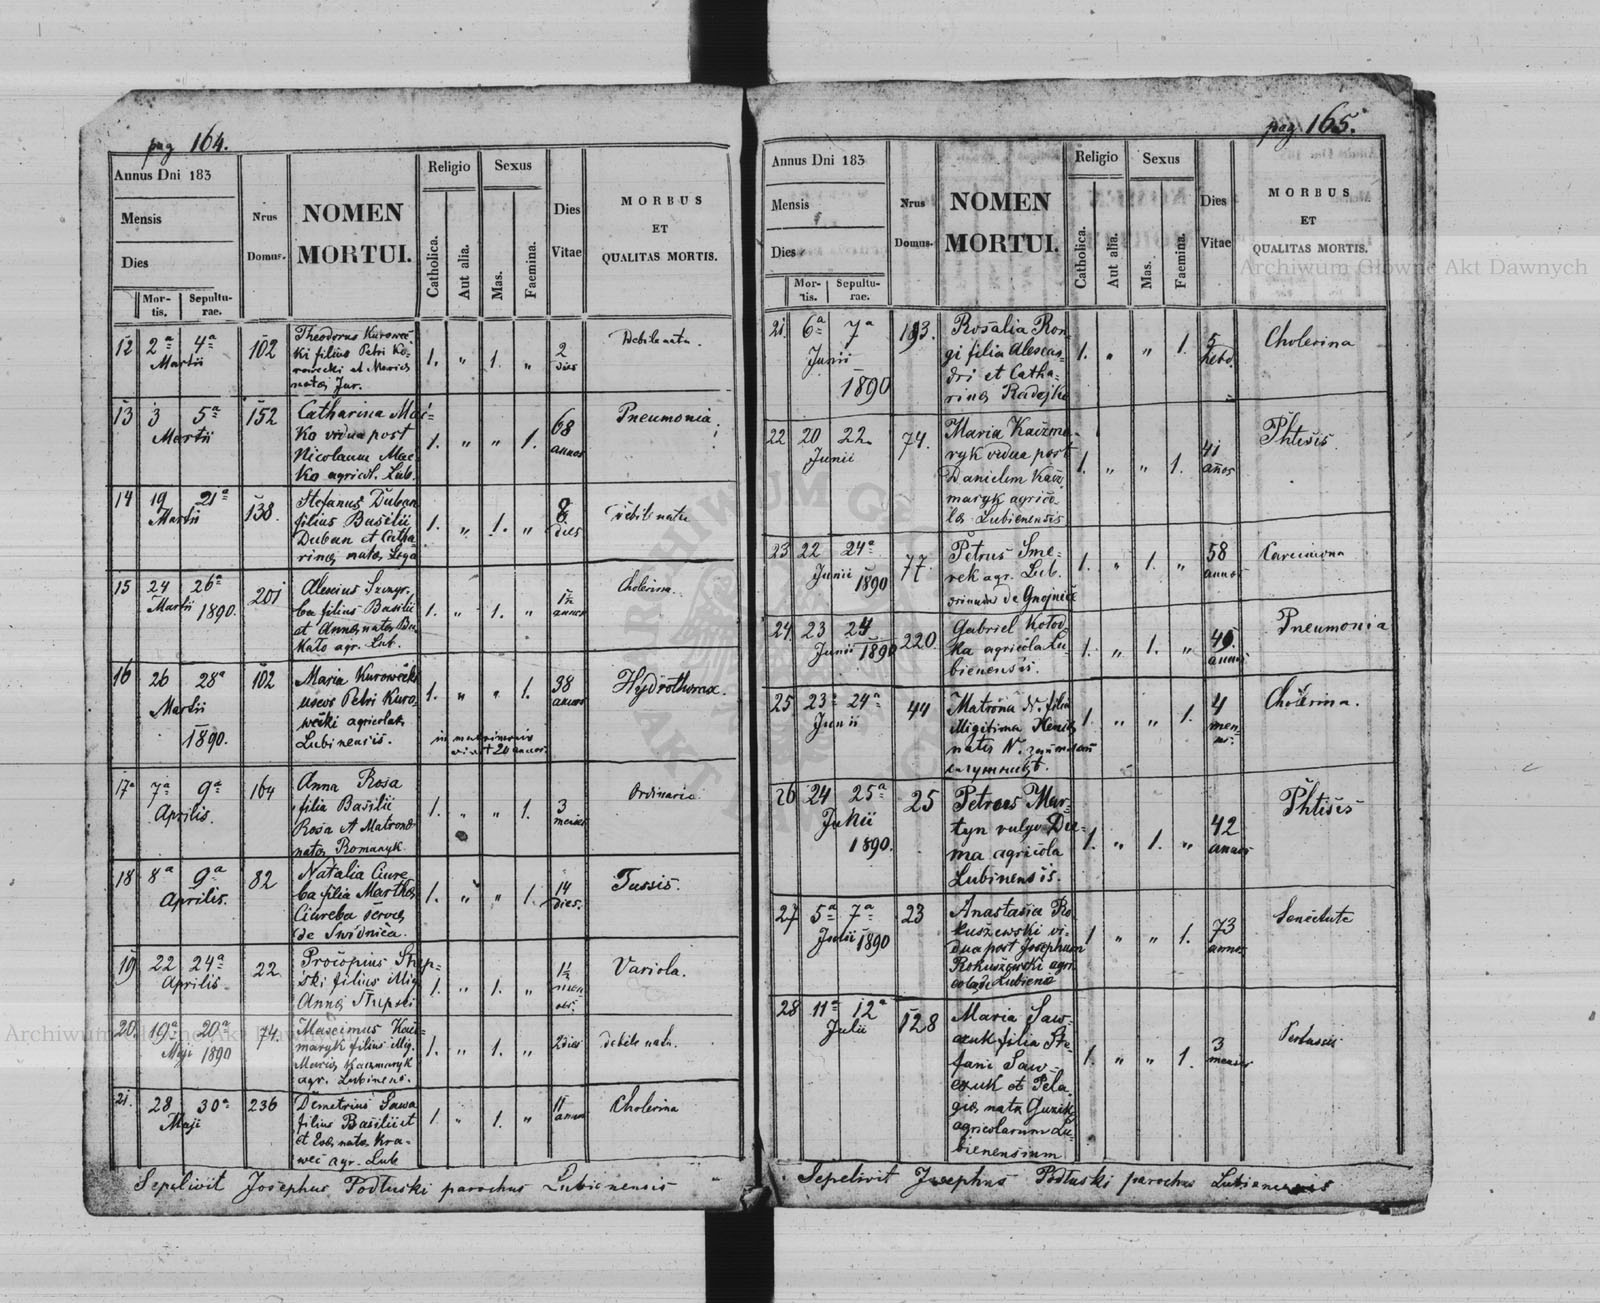 pag 164.
Annus Dni 183
Mensis
Dies
Mortis.
Sepulturae.
Nrus Domus.
NOMEN MORTUI.
Religio
Catholica.
Aut alia.
Sexus
Mas.
Faemina.
Dies Vitae
MORBUS
ET
QUALITAS MORTIS.
12 2ª 4ª Martii 102
Theodorus Kurowec-
ki filius Petri Ku-
rowecki et Maria
nata Jur.
1. " 1. " 2 dies
Debile natu.
13 3 5ª Martii 152
Catharina Mać-
ko vidua post
Nicolaum Mać-
ko agricol. Lub.
1. " " 1. 68 annos
Pneumonia
14 19 21ª Martii 138.
Stefanus Duban
filius Basilii
Duban et Catha-
rina nata Lega
1. " 1. " 8 dies
debile natu
15 24 26ª Martii 1890. 201
filius Basilii
et Anna nata
agr. Lub.
1. " 1. " 1½ annos
Cholerina.
16 26 28ª Martii 1890. 102
Maria Kurowecki
uxor Petri Kuro-
wecki agricolae
Lubinensis.
1. " " 1. 38 annos
in matrimonio
vixit 20 annos
Hydrothorax.
17ª 7ª 9ª Aprilis. 164
Anna Rosa
filia Basilii
Rosa et Matrona
nata Romanyk.
1. " " 1. 3 menses
Ordinaria
18 8ª 9ª Aprilis. 82
Natalia Ciure-
ba filia Martha
Ciureba serva
de Swidnica.
1. " " 1. 14 dies.
Tussis.
19 22 24ª Aprilis 22
Procopius Stup-
ski filius illig
Anna Stupski
1. " 1. "
Variola.
20. 19ª 20ª Maji 1890 74.
Maximus Kacz-
maryk filius illig.
Maria Kaczmaryk
agr. Lubinens.
1. " 1. " 2 dies
debile natu.
21. 28 30ª Maji 236
Demetrius Sawa
filius Basilii et
et Eva nata Kra-
wec agr. Lub
1. " 1. " 11 annos
Cholerina
Sepelivit Josephus Podluski parochus Lubienensis
pag 165.
Annus Dni 183
Mensis
Dies
Mortis.
Sepulturae.
Nrus Domus.
NOMEN MORTUI.
Religio
Catholica.
Aut alia.
Sexus
Mas.
Faemina.
Dies Vitae
MORBUS
ET
QUALITAS MORTIS.
21. 6ª 7ª Junii 1890 193.
Rosalia Ron-
gi filia Alexan-
dri et Catha-
rina
1. " " 1. 5 hebd.
Cholerina
22 20 22. Junii 74.
Maria Kaczma-
ryk vidua post
Danielem Kacz
maryk agrico-
la Lubienensis
1. " " 1. 41 años
Phtisis.
23 22 24ª Junii 1890 77.
Petrus Sme-
rek agr. Lub.
oriundus de Gnojnice
1. " 1. " 58 annos
Carcinoma
24. 23 24 Junii 1890 220
Gabriel Kolod-
ka agricola Lu-
bienensis.
1. " 1. " annos
Pneumonia
25 23ª 24ª Junii 44
Matrona N. filia
illigitima
nata N.
1. " " 1. 4 menses.
Cholerina.
26 24 25ª Junii 1890. 25
Petrus Mar-
tyn vulgo Du-
ma agricola
Lubinensis.
1. " 1. " 42 annos
Phtisis
27 5ª 7ª Julii 1890 23
Anastasia Ro-
kuszewski vi-
dua post Josephum
Rokuszewski agri
colae Lubiens
1 " " 1. 73 annos
Senectute
28 11ª 12ª Julii 128
Maria Saw-
czuk filia Ste-
fani Saw-
czuk et Pela
gia nata Guzik
agricolarum Lu-
bienensium
1. " " 1. 3 menses
Pertussis
Sepelivit Josephus Podluski parochus Lubienensis
Archiwum Główne Akt Dawnych
Archiwum Główne Akt Dawnych